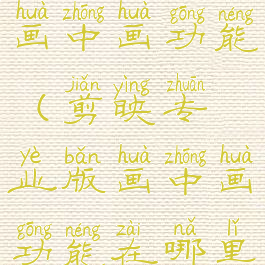 huà zhōng huà gōng néng
画中画功能
jiǎn yìng zhuān
(剪映专
yè bǎn huà zhōng huà
业版画中画
gōng néng zài nǎ lǐ
功能在哪里